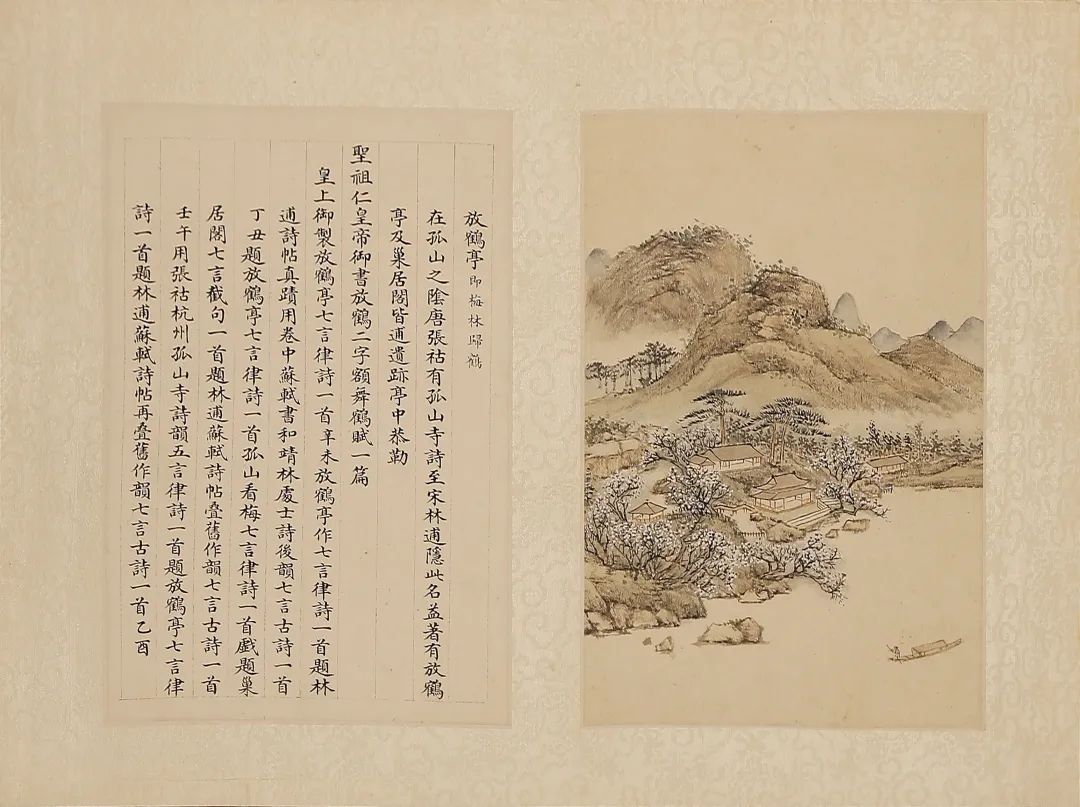 放鶴亭即梅林歸鶴
在孤山之陰唐張祜有孤山寺詩至宋林逋隱此名益著有放鶴
亭及巢居閣皆逋遺跡亭中恭勒
聖祖仁皇帝御書放鶴二字額舞鶴賦一篇
皇上御製放鶴亭七言律詩一首辛未放鶴亭作七言律詩一首題林
逋詩帖真蹟用卷中蘇軾書和靖林處士詩後韻七言古詩一首
丁丑題放鶴亭七言律詩一首孤山看梅七言律詩一首戲題巢
居閣七言截句一首題林逋蘇軾詩帖疊舊作韻七言古詩一首
壬午用張祜杭州孤山寺詩韻五言律詩一首題放鶴亭七言律
詩一首題林逋蘇軾詩帖再疊舊作韻七言古詩一首乙酉